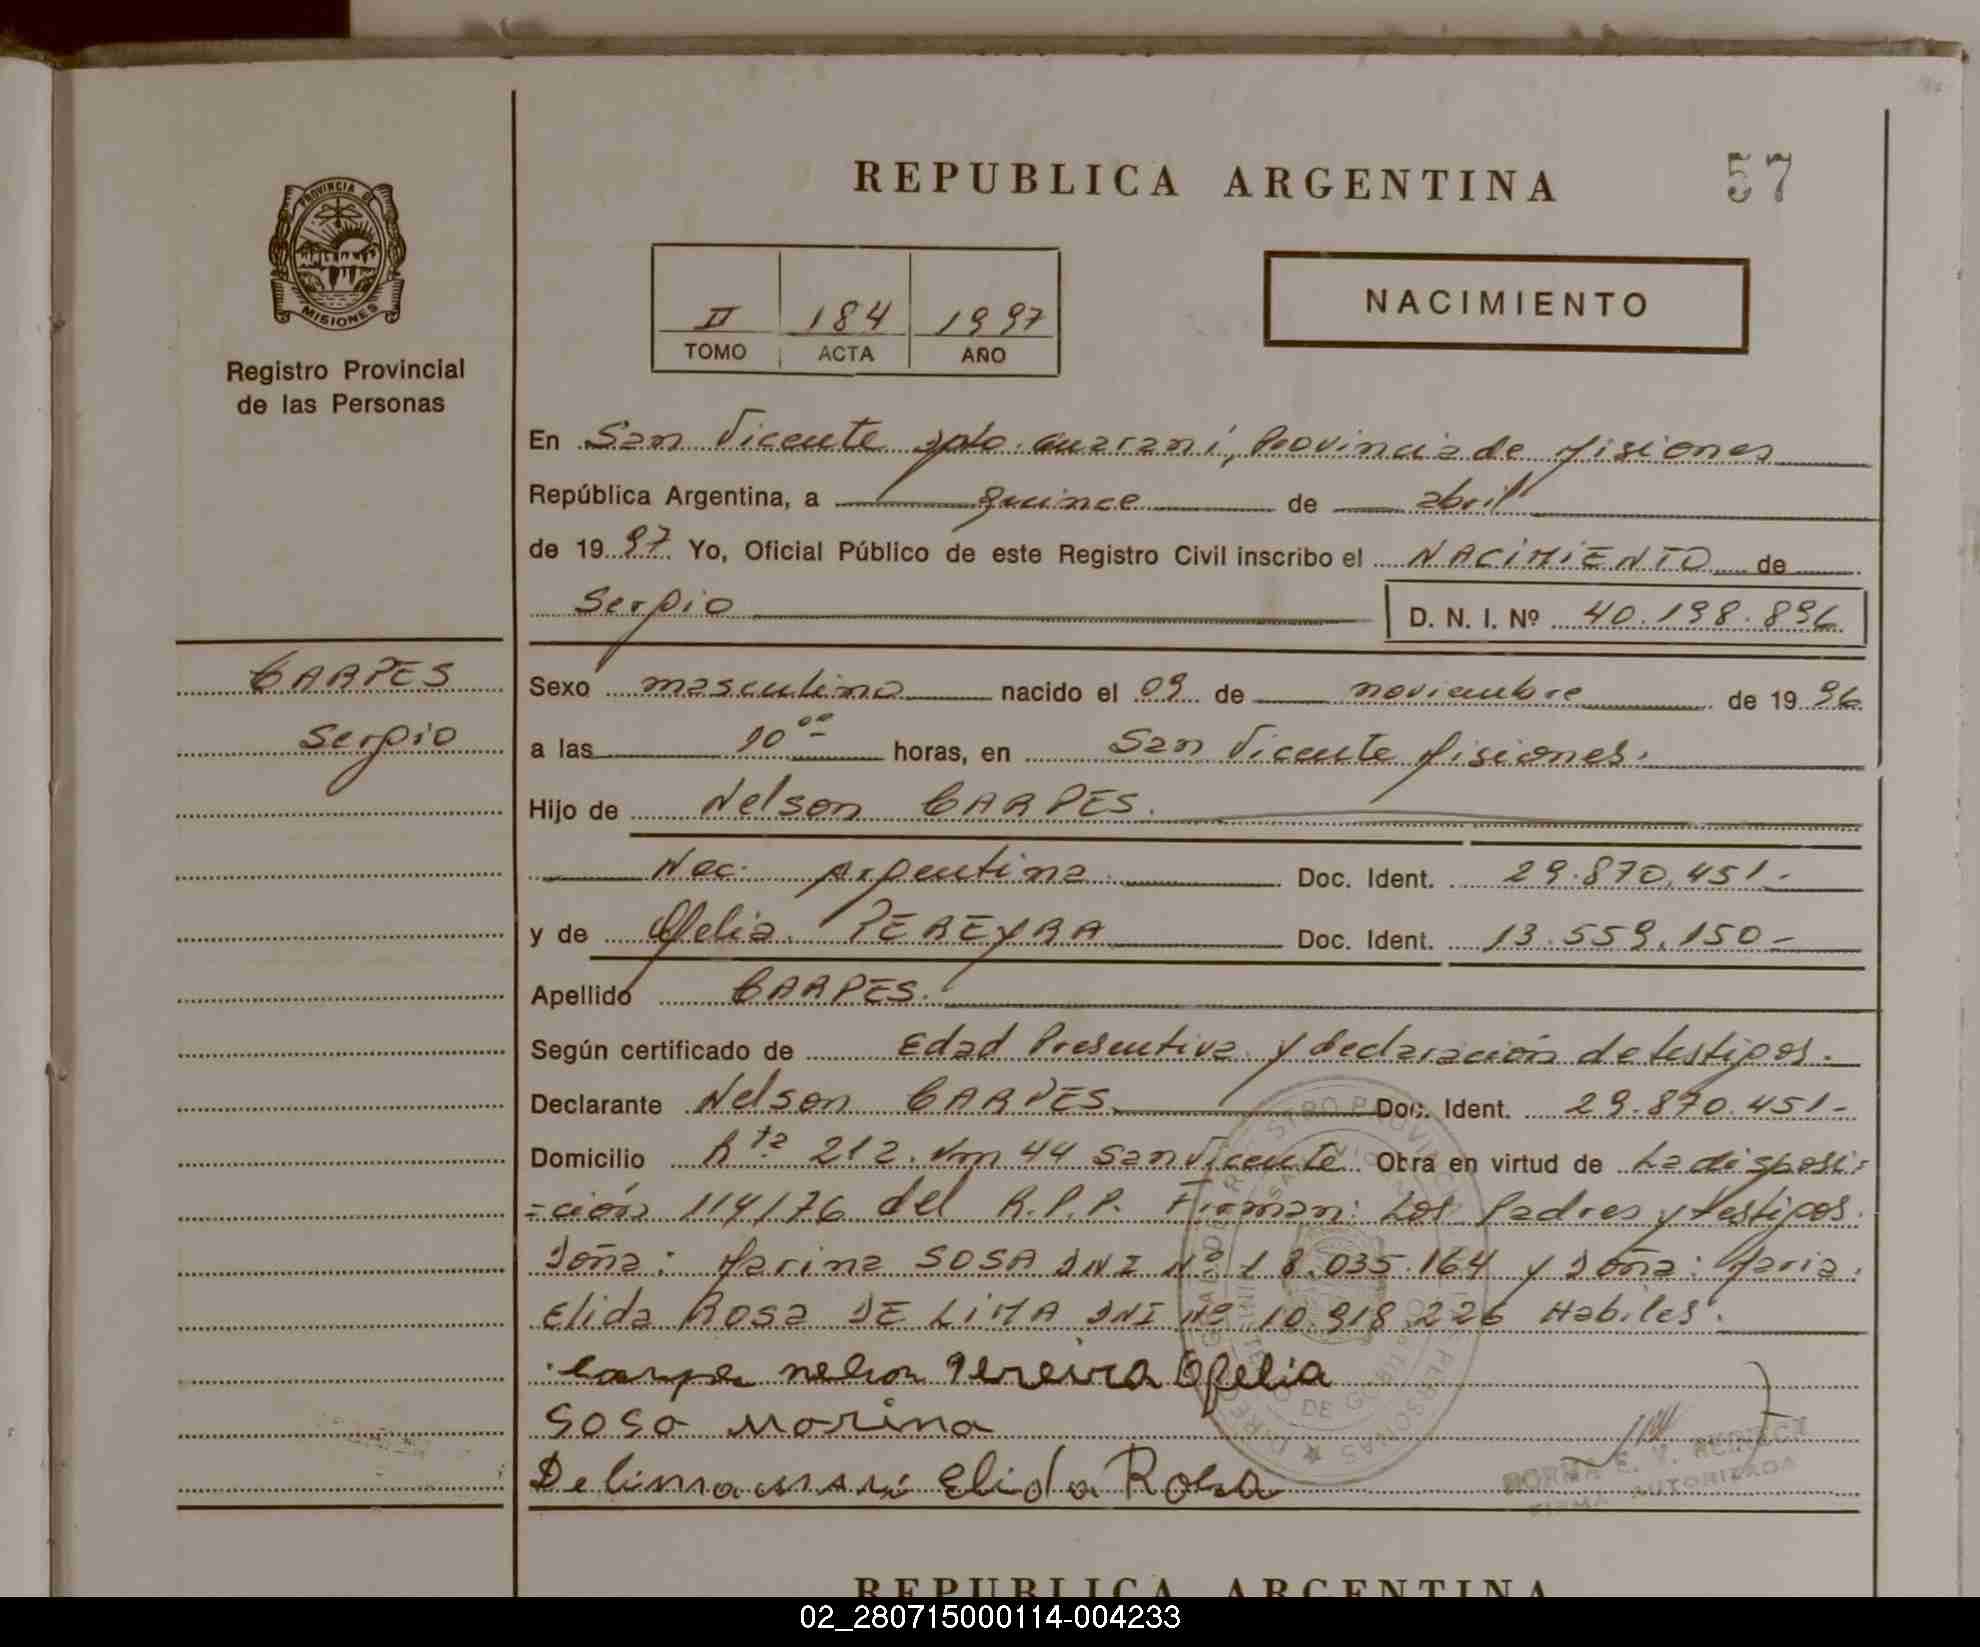 REPUBLICA ARGENTINA
57
PROVINCIA DE
MISIONES
Registro Provincial
de las Personas
II 184 1997
TOMO ACTA AÑO
NACIMIENTO
En San Vicente Dpto. Guaraní, Provincia de Misiones
República Argentina, a quince de abril
de 1997 Yo, Oficial Público de este Registro Civil inscribo el NACIMIENTO de
Sergio D. N. I. Nº 40.198.896
CARPES
Sergio
Sexo masculino nacido el 09 de noviembre de 1996
a las 10 00 horas, en San Vicente Misiones.
Hijo de Nelson CARPES.
Nac. Argentina Doc. Ident. 29.870.451-
y de Ofelia PEREYRA Doc. Ident. 13.559.150-
Apellido CARPES.
Según certificado de Edad Presentiva y declaración de testigos.
Declarante Nelson CARPES Doc. Ident. 29.870.451-
Domicilio Rta 212. Km 44 San Vicente Obra en virtud de La disposi=
=ción 114/76 del R.P.P. Firman: Los Padres y testigos
Doña: Marina SOSA DNI Nº 18.035.164 y Doña: Maria
Elida Rosa DE LIMA DNI Nº 10.918.226 Habiles.
Carpe nelson Pereira Ofelia
Soso Morina
Delima Elida Rosa
NORMA E. V.
FIRMA AUTORIZADA
REPUBLICA ARGENTINA
02_280715000114-004233